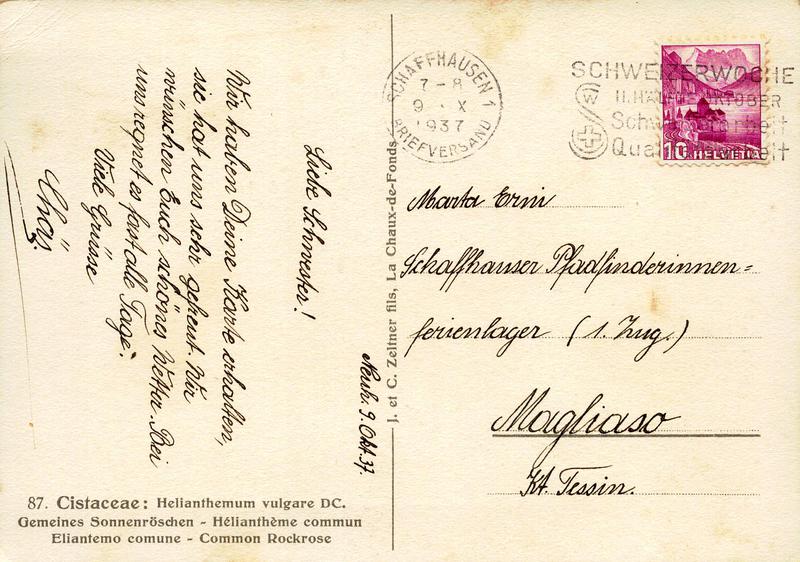 Neuh. 9. Okt. 37.
Liebe Schwester!
Wir haben Deine Karte erhalten,
sie hat uns sehr gefreut. Wir
wünschen Euch schönes Wetter. Bei
uns regnet es fast alle Tage.
Viele Grüsse
87. Cistaceae: Helianthemum vulgare DC.
Gemeines Sonnenröschen - Hélianthème commun
Eliantemo comune - Common Rockrose
J. et C. Zeltner fils, La Chaux-de-Fonds
SCHAFFHAUSEN 1
7-8
9. X
1937
BRIEFVERSAND
SCHWEIZERWOCHE
II. HÄLFTE OKTOBER
Schweizerarbeit
Qualitätsarbeit
10 HELVETIA
Marta Erni
Schaffhauser Pfadfinderinnen=
ferienlager (1. Zug.)
Magliaso
Kt. Tessin.